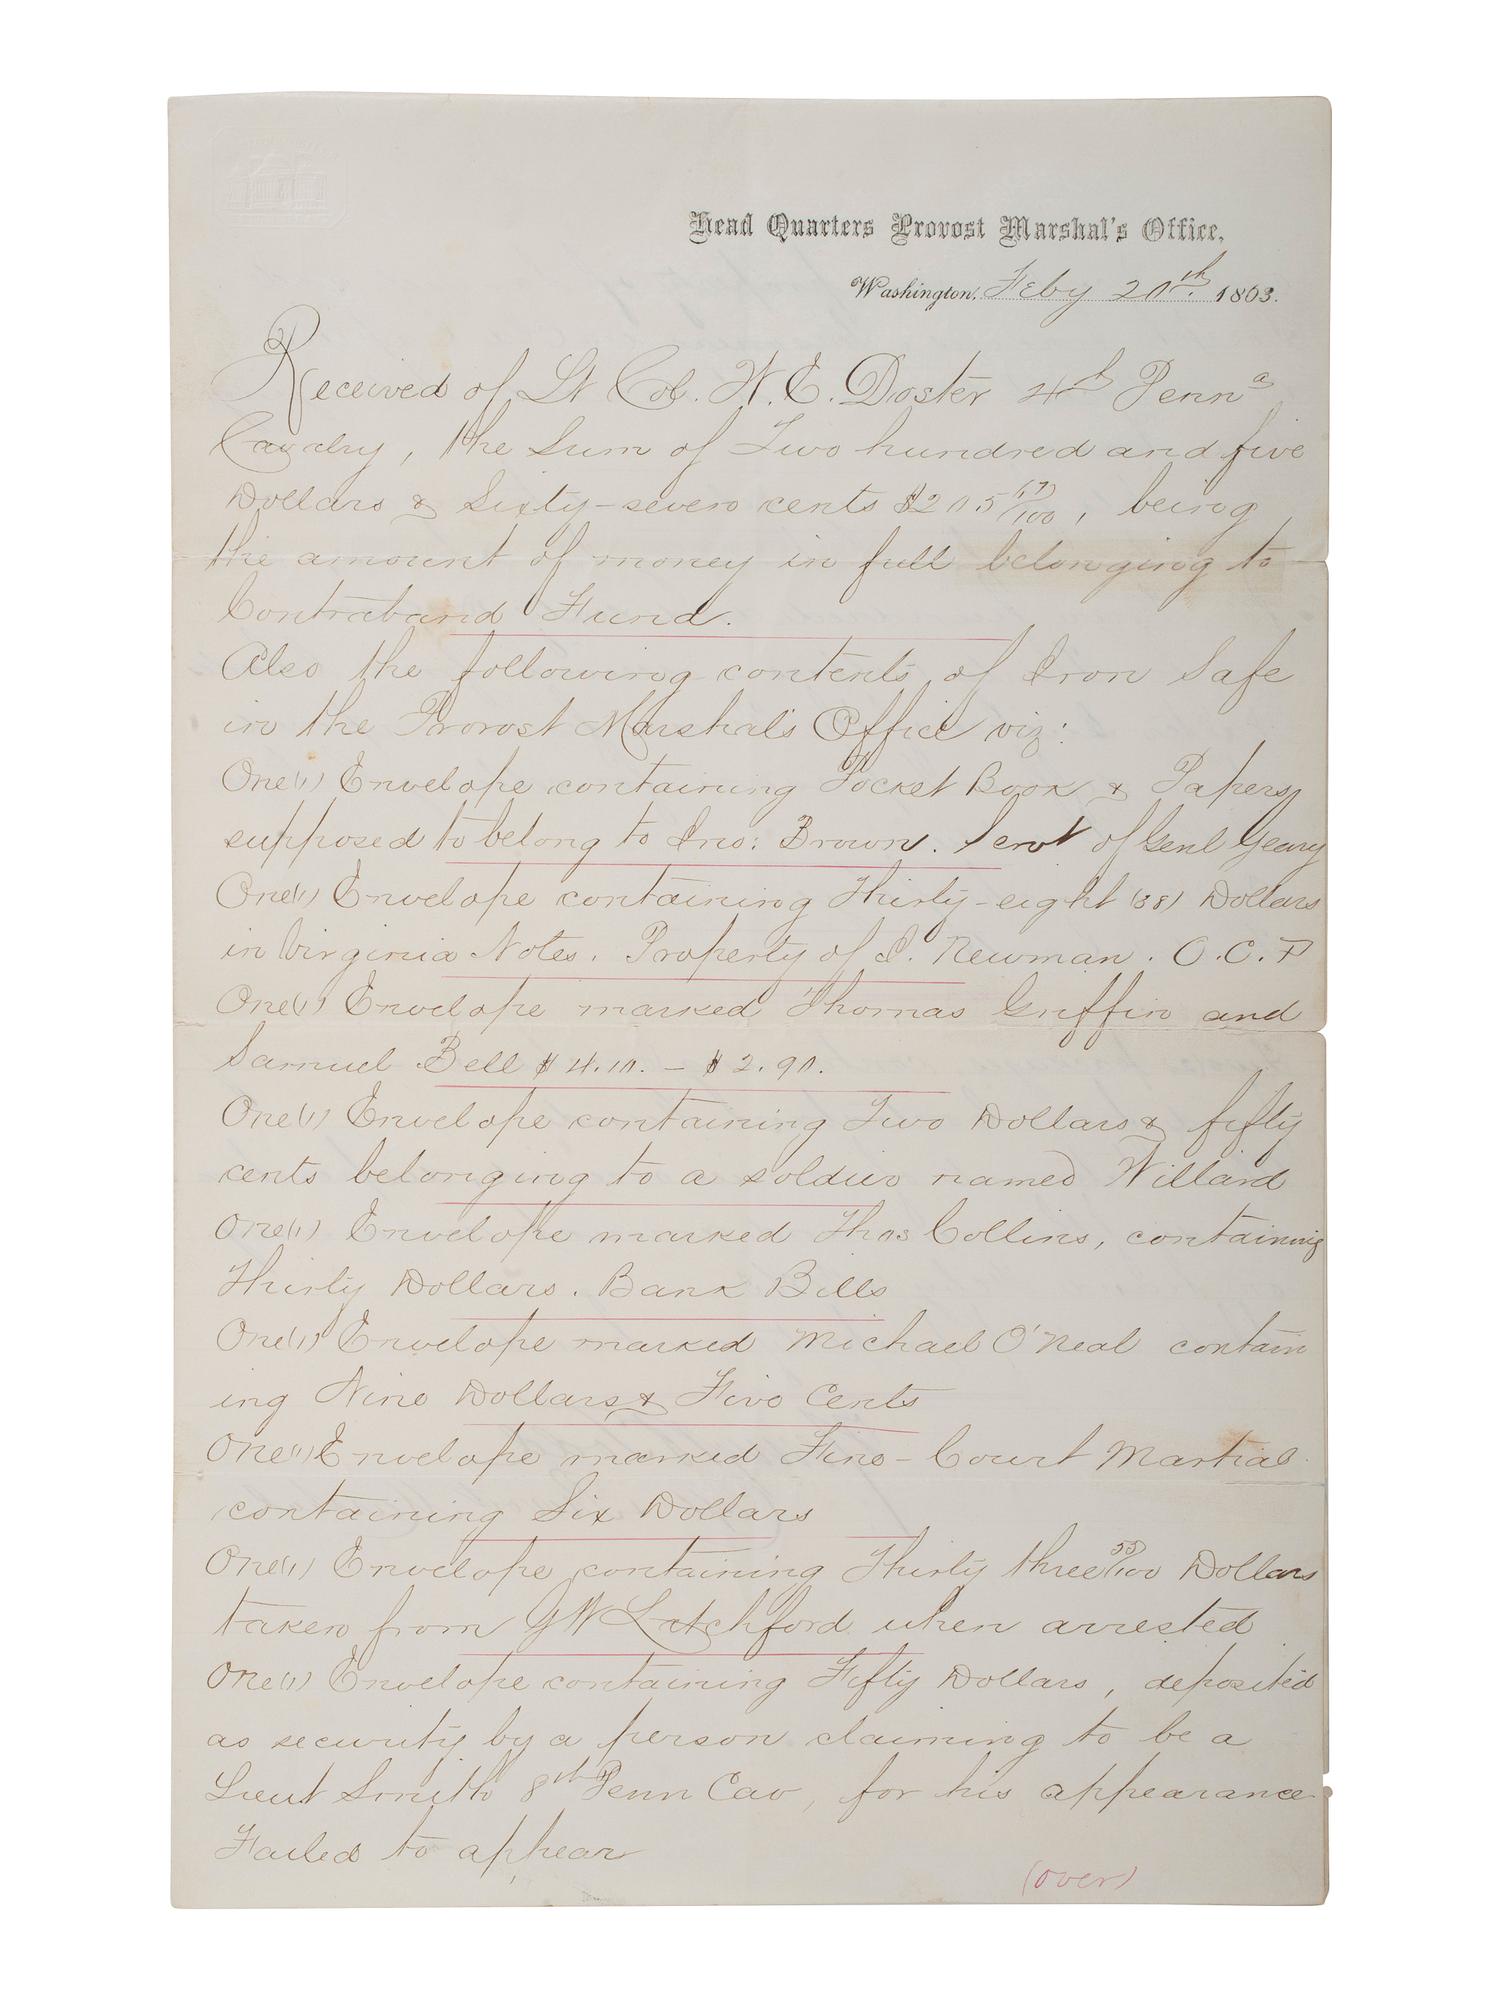 Head Quarters Provost Marshal's Office,
Washington, Feby 20th 1863.
Received of Lt Col. W. E. Doster 4th Penna
Cavalry, the Sum of Two hundred and five
Dollars & Sixty-seven cents $205 67/100, being
the amount of money in full belonging to
Contraband Fund.
Also the following contents of Iron Safe
in the Provost Marshal's Office viz:
One (1) Envelope containing Pocket Book & Papers
supposed to belong to Jno: Brown. Servt of Genl Geary
One (1) Envelope containing Thirty-eight (38) Dollars
in Virginia Notes. Property of I. Newman. O.C.P
One (1) Envelope marked Thomas Griffin and
Samuel Bell $4.10. – $2.90.
One (1) Envelope containing Two Dollars & fifty
cents belonging to a soldier named Willard
One (1) Envelope marked Thos Collins, containing
Thirty Dollars. Bank Bills
One (1) Envelope marked Michael O'Neal contain
ing Nine Dollars & Five Cents
One (1) Envelope marked Fine – Court Martial
containing Six Dollars
One (1) Envelope containing Thirty three 55/100 Dollars
taken from GW Latchford when arrested
One (1) Envelope containing Fifty Dollars, deposited
as security by a person claiming to be a
Lieut Smith 8th Penn Cav, for his appearance
Failed to appear
(over)